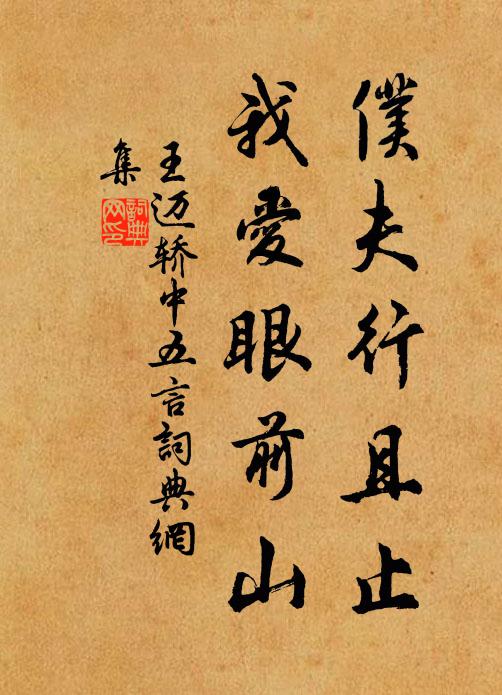 僕夫行且止
我愛眼前山
王迈轿中五言詞典網
集
詞典
网印